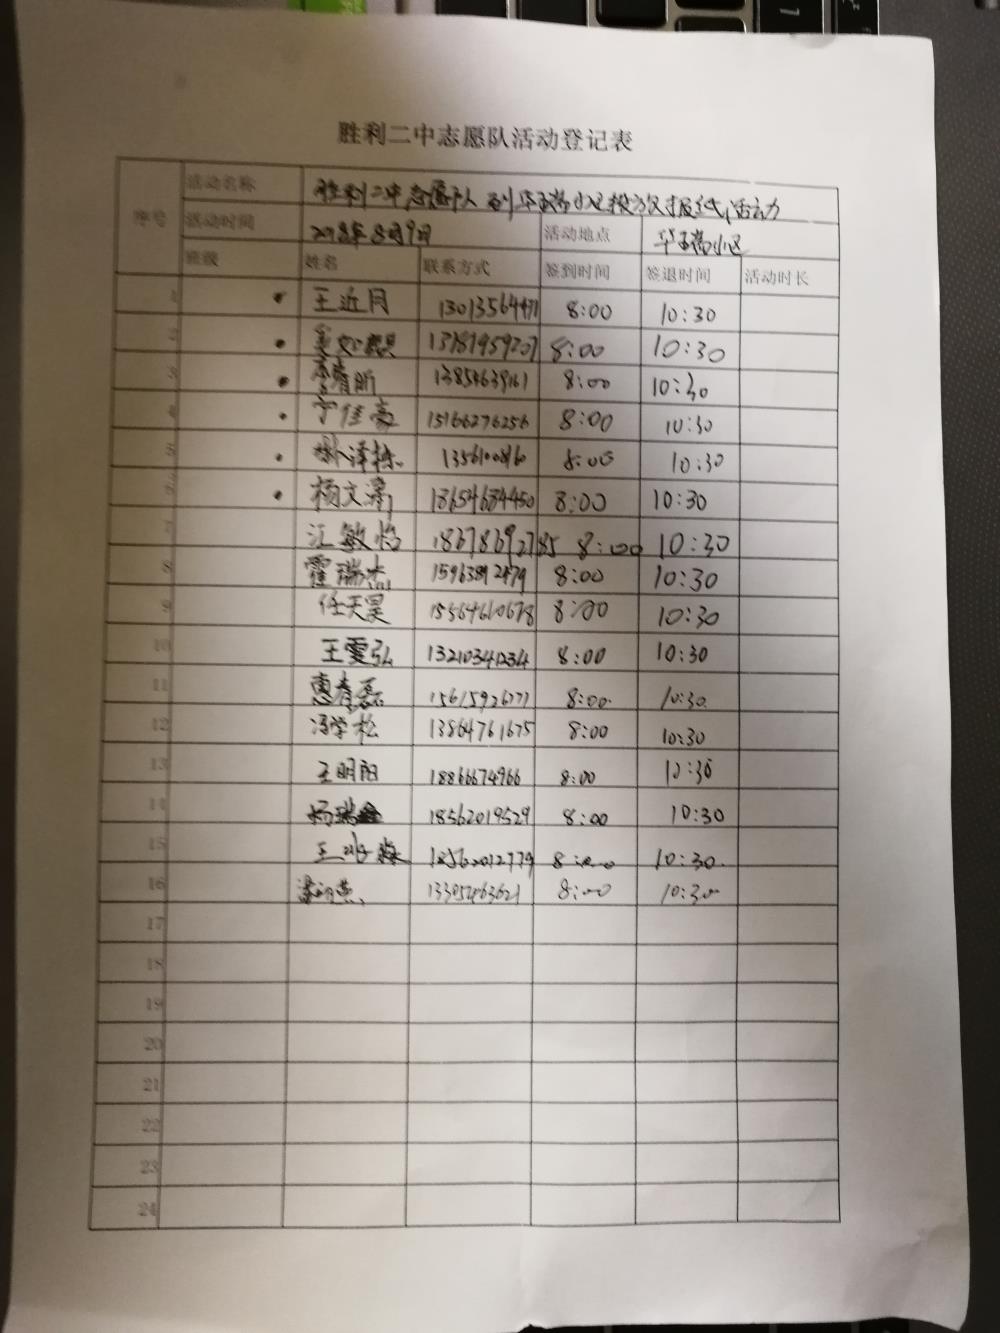 胜利二中志愿队活动登记表
序号 活动名称 胜利二中志愿 到华瑞小区投放报纸活动
活动时间 2018年8月9日 活动地点 华瑞小区
班级 姓名 联系方式 签到时间 签退时间 活动时长
1 王近月 8:00 10:30
2 8:00 10:30
3 8:00 10:30
4 宁佳豪 15166276256 8:00 10:30
5 8:00 10:30
6 18654684450 8:00 10:30
7 江敏怡 18678692785 8:00 10:30
8 霍瑞杰 8:00 10:30
9 任天昊 15564610678 8:00 10:30
10 王雯弘 13210341234 8:00 10:30
11 8:00 10:30
12 冯学松 13864761675 8:00 10:30
13 王明阳 18866674966 8:00 10:30
14 杨瑞鑫 18562019529 8:00 10:30
15 18562012779 8:00 10:30
16 8:00 10:30
17
18
19
20
21
22
23
24